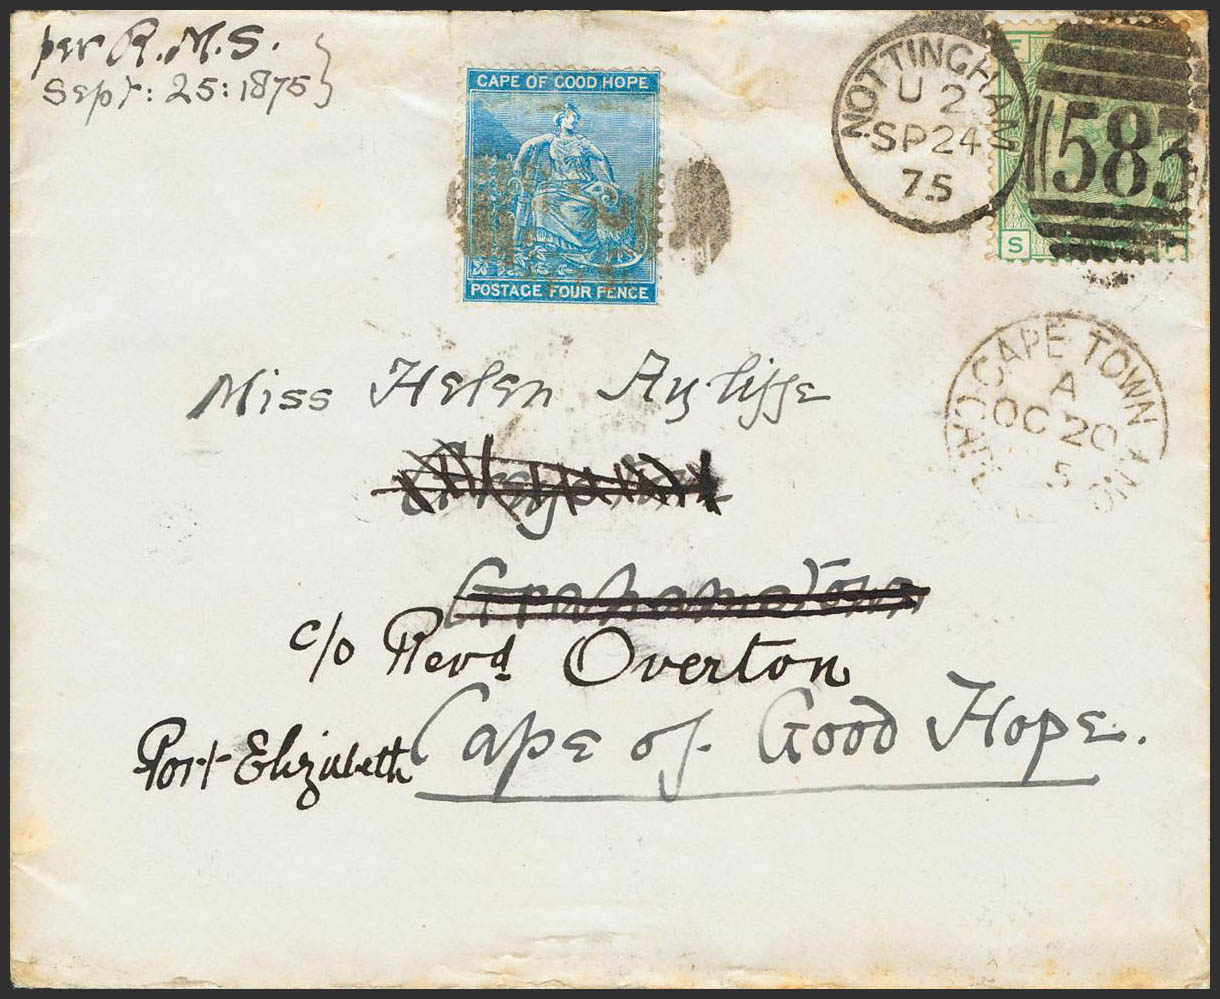 per R.M.S.
Sept: 25: 1875
CAPE OF GOOD HOPE
POSTAGE FOUR PENCE
NOTTINGHAM
U 2
SP 24
75
583
S
CAPE TOWN
A
OC 20
5
Miss Helen Ayliffe
Grahamstown
c/o Revd Overton
Port Elizabeth Cape of Good Hope.